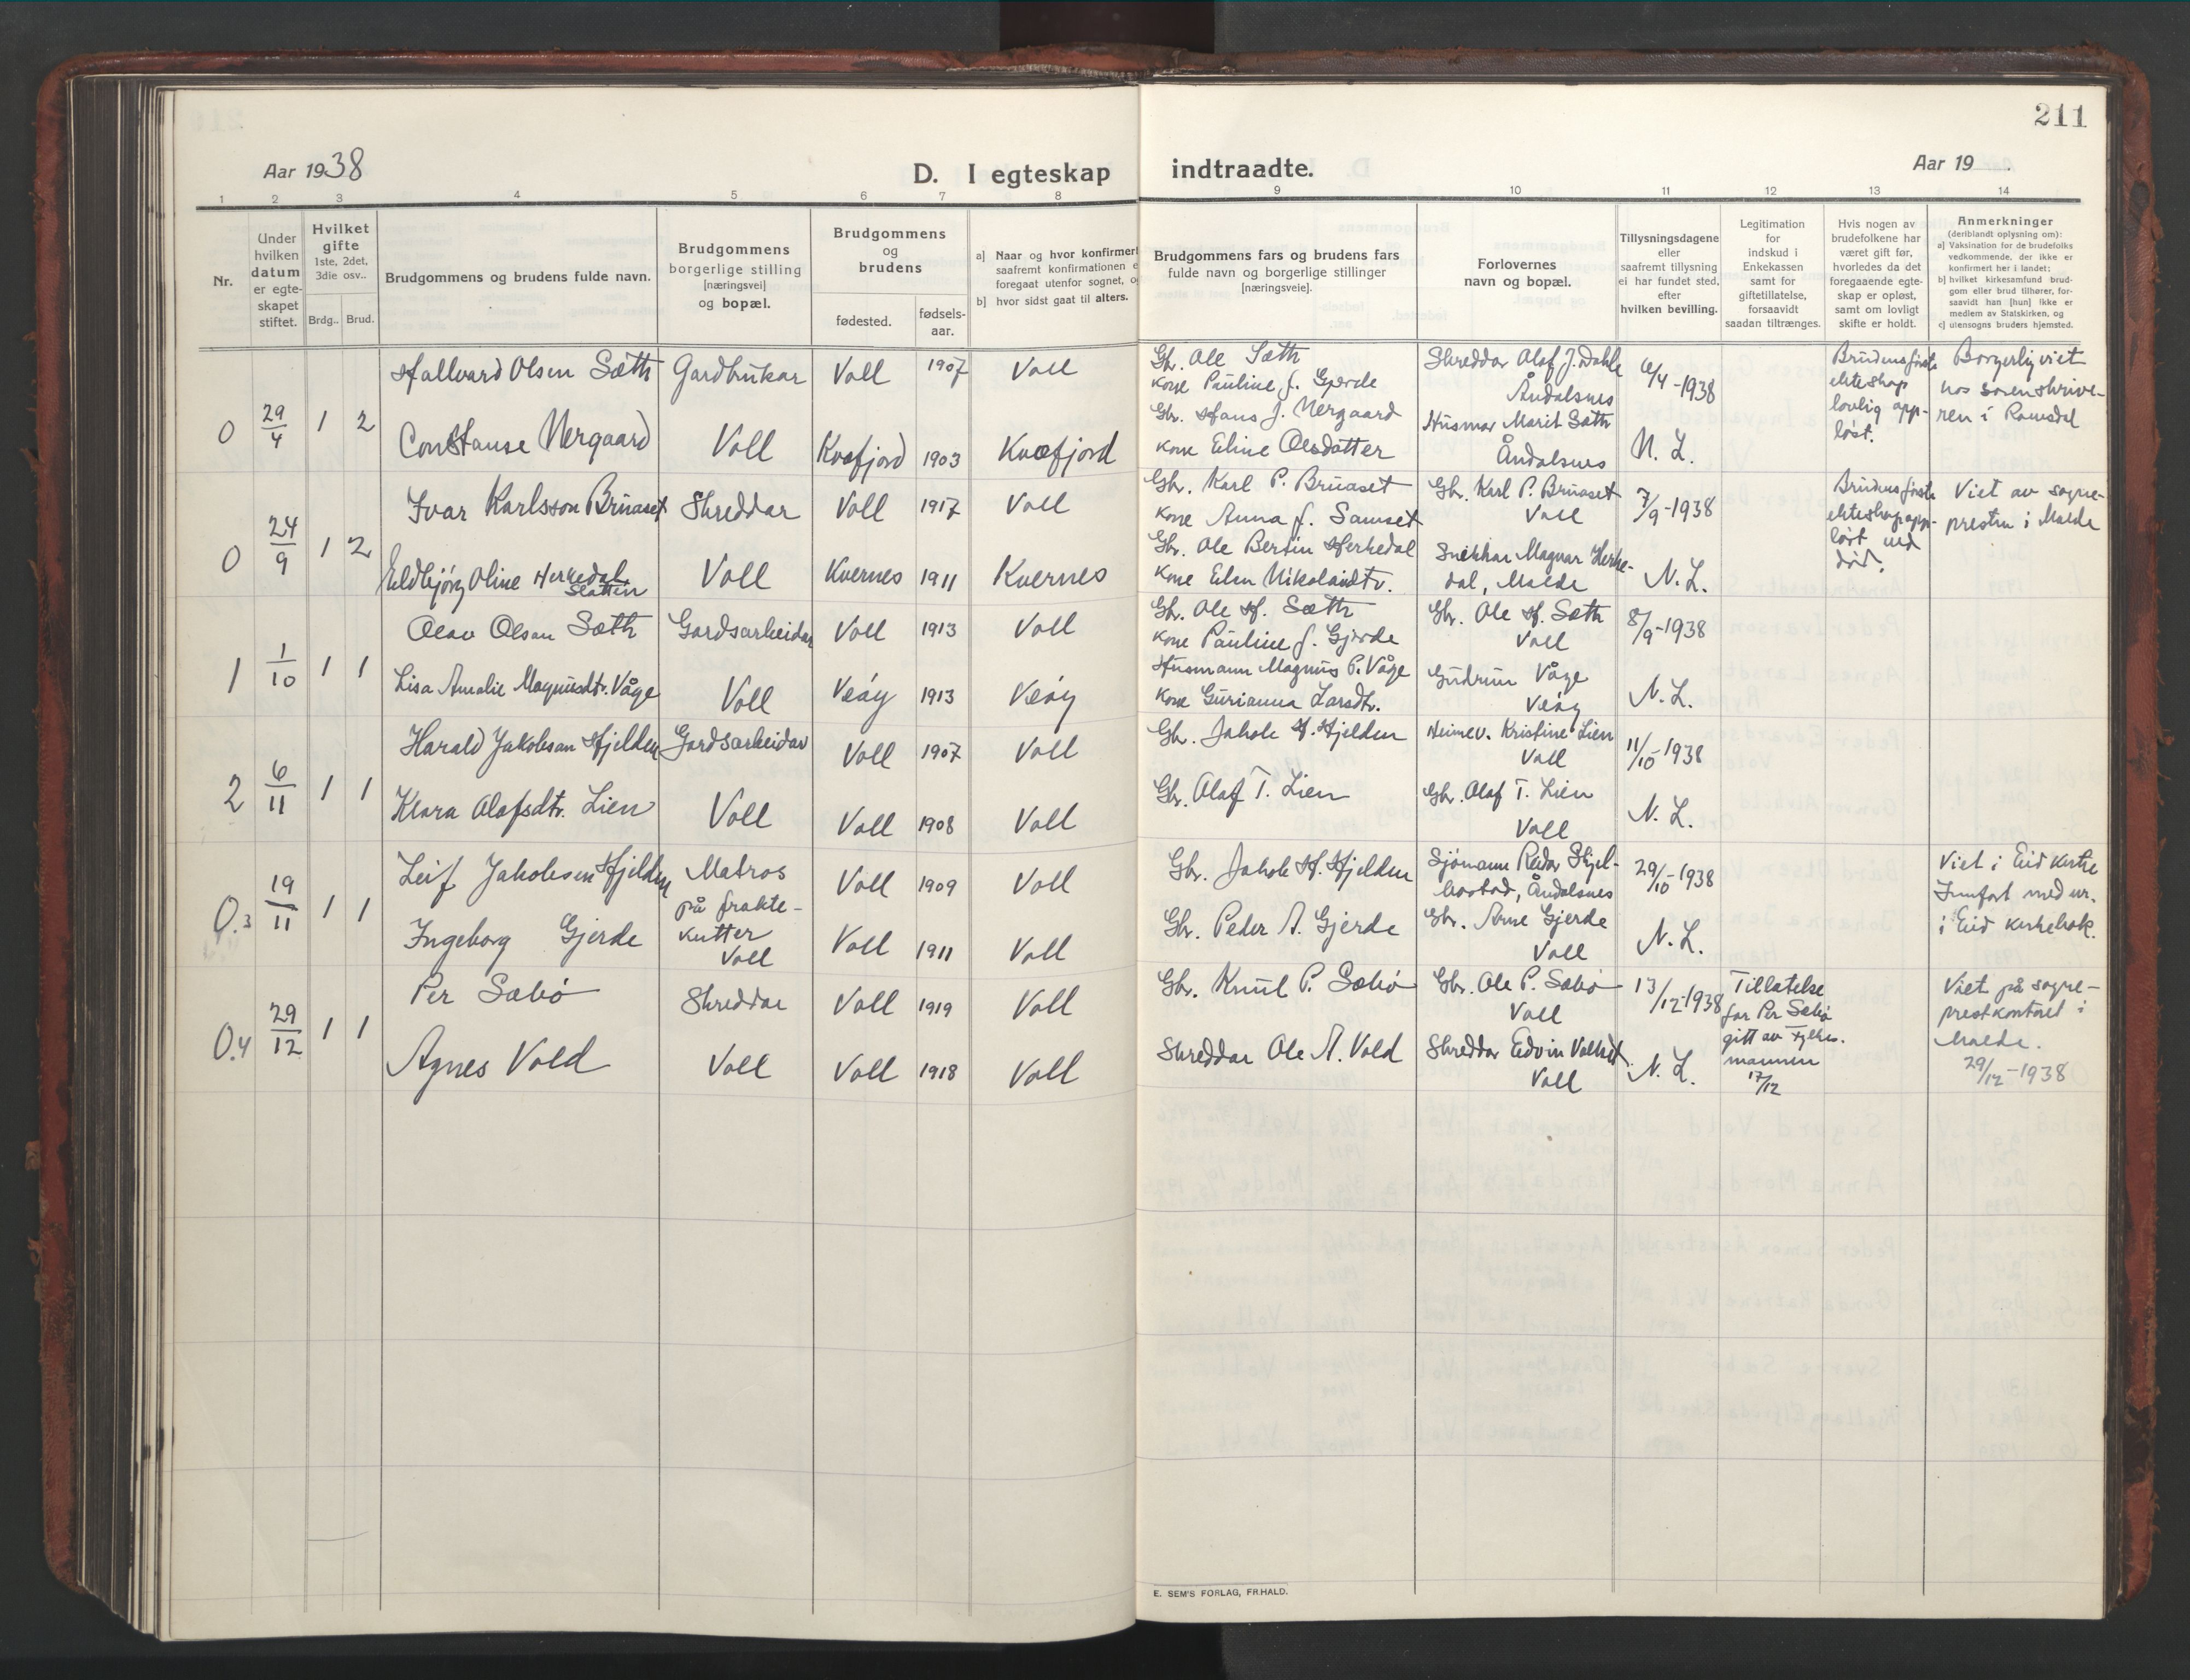 211
Aar 1938
D. I egteskap indtraadte.
Aar 19 .
1 2 3 4 5 6 7 8 9 10 11 12 13 14
Nr.
Under
hvilken
datum
er egte-
skapet
stiftet.
Hvilket
gifte
1ste, 2det,
3die osv..
Brdg.. Brud.
Brudgommens og brudens fulde navn.
Brudgommens
borgerlige stilling
[næringsvei]
og bopæl.
Brudgommens
og
brudens
fødested.
fødsels-
aar.
a] Naar og hvor konfirmert
saafremt konfirmationen e
foregaat utenfor sognet, og
b] hvor sidst gaat til alters.
Brudgommens fars og brudens fars
fulde navn og borgerlige stillinger
[næringsveie].
Forlovernes
navn og bopæl.
Tillysningsdagene
eller
saafremt tillysning
ei har fundet sted,
efter
hvilken bevilling.
Legitimation
for
indskud i
Enkekassen
samt for
giftetillatelse,
forsaavidt
saadan tiltrænges.
Hvis nogen av
brudefolkene har
været gift før,
hvorledes da det
foregaaende egte-
skap er opløst,
samt om lovligt
skifte er holdt.
Anmerkninger
(deriblandt oplysning om):
a] Vaksination for de brudefolks
vedkommende, der ikke er
konfirmert her i landet:
b] hvilket kirkesamfund brud-
gom eller brud tilhører, for-
saavidt han [hun] ikke er
medlem av Statskirken, og
c] utensogns bruders hjemsted.
0 29/4 1 2
Hallvard Olsen Sæth Gardbrukar Voll 1907 Voll
Constanse Nergaard Voll Kvæfjord 1903 Kvæfjord
Gbr. Ole Sæth
kone Pauline f. Gjerde
Gbr. Hans J. Nergaard
kone Eline Olsdatter
Skreddar Olaf J. Dahle
Åndalsnes
Husmor Marit Sæth
Åndalsnes
6/4-1938
N. L.
Brudens første
ekteskap
lovlig opp-
løst.
Borgerlig viet
hos sorenskrive-
ren i Romsdal
0 24/9 1 2
Ivar Karlsson Bruaset Skreddar Voll 1917 Voll
Eldbjørg Oline Herkedal
Slatten Voll Kvernes 1911 Kvernes
Gbr. Karl P. Bruaset
kone Anna f. Samset
Gbr. Ole Bertin Herkedal
kone Elen Nikolaidtr.
Gbr. Karl P. Bruaset
Voll
Snekkar Magnar Herke-
dal, Molde
7/9-1938
N. L.
Brudens første
ekteskap opp-
løst ved
død.
Viet av sogne-
presten i Molde
1 1/10 1 1
Olav Olsen Sæth Gardsarbeidar Voll 1913 Voll
Lisa Amalie Magnusdtr. Våge Voll Veøy 1913 Veøy
Gbr. Ole H. Sæth
kone Pauline f. Gjerde
Husmann Magnus P. Våge
kone Gurianna Larsdtr.
Gbr. Ole H. Sæth
Voll
Gudrun Våge
Veøy
8/9-1938
N. L.
2 6/11 1 1
Harald Jakobsen Hjelden Gardsarbeidar Voll 1907 Voll
Klara Olafsdtr. Lien Voll Voll 1908 Voll
Gbr. Jakob H. Hjelden
Gbr. Olaf T. Lien
Heimev. Kristine Lien
Voll
Gbr. Olaf T. Lien
Voll
11/10-1938
N. L.
0.3 19/11 1 1
Leif Jakobsen Hjelden Matros
på frakte-
kutter
Voll
Voll 1909 Voll
Ingeborg Gjerde Voll 1911 Voll
Gbr. Jakob H. Hjelden
Gbr. Peder A. Gjerde
Sjømann Reidar Skjel-
bostad, Åndalsnes
Gbr. Arne Gjerde
Voll
29/10-1938
N. L.
Viet i Eid kirke
Innført med nr.
i Eid kirkebok.
0.4 29/12 1 1
Per Sæbø Skreddar Voll 1919 Voll
Agnes Vold Voll Voll 1918 Voll
Gbr. Knut P. Sæbø
Skreddar Ole A. Vold
Gbr. Ole P. Sæbø
Voll
Skreddar Edvin
Voll
13/12-1938
N. L.
Tillatelse
for Per Sæbø
gitt av Fylkes-
mannen
17/12
Viet på sogne-
prestkontoret i
Molde.
29/12-1938
E. SEM'S FORLAG, FR.HALD.